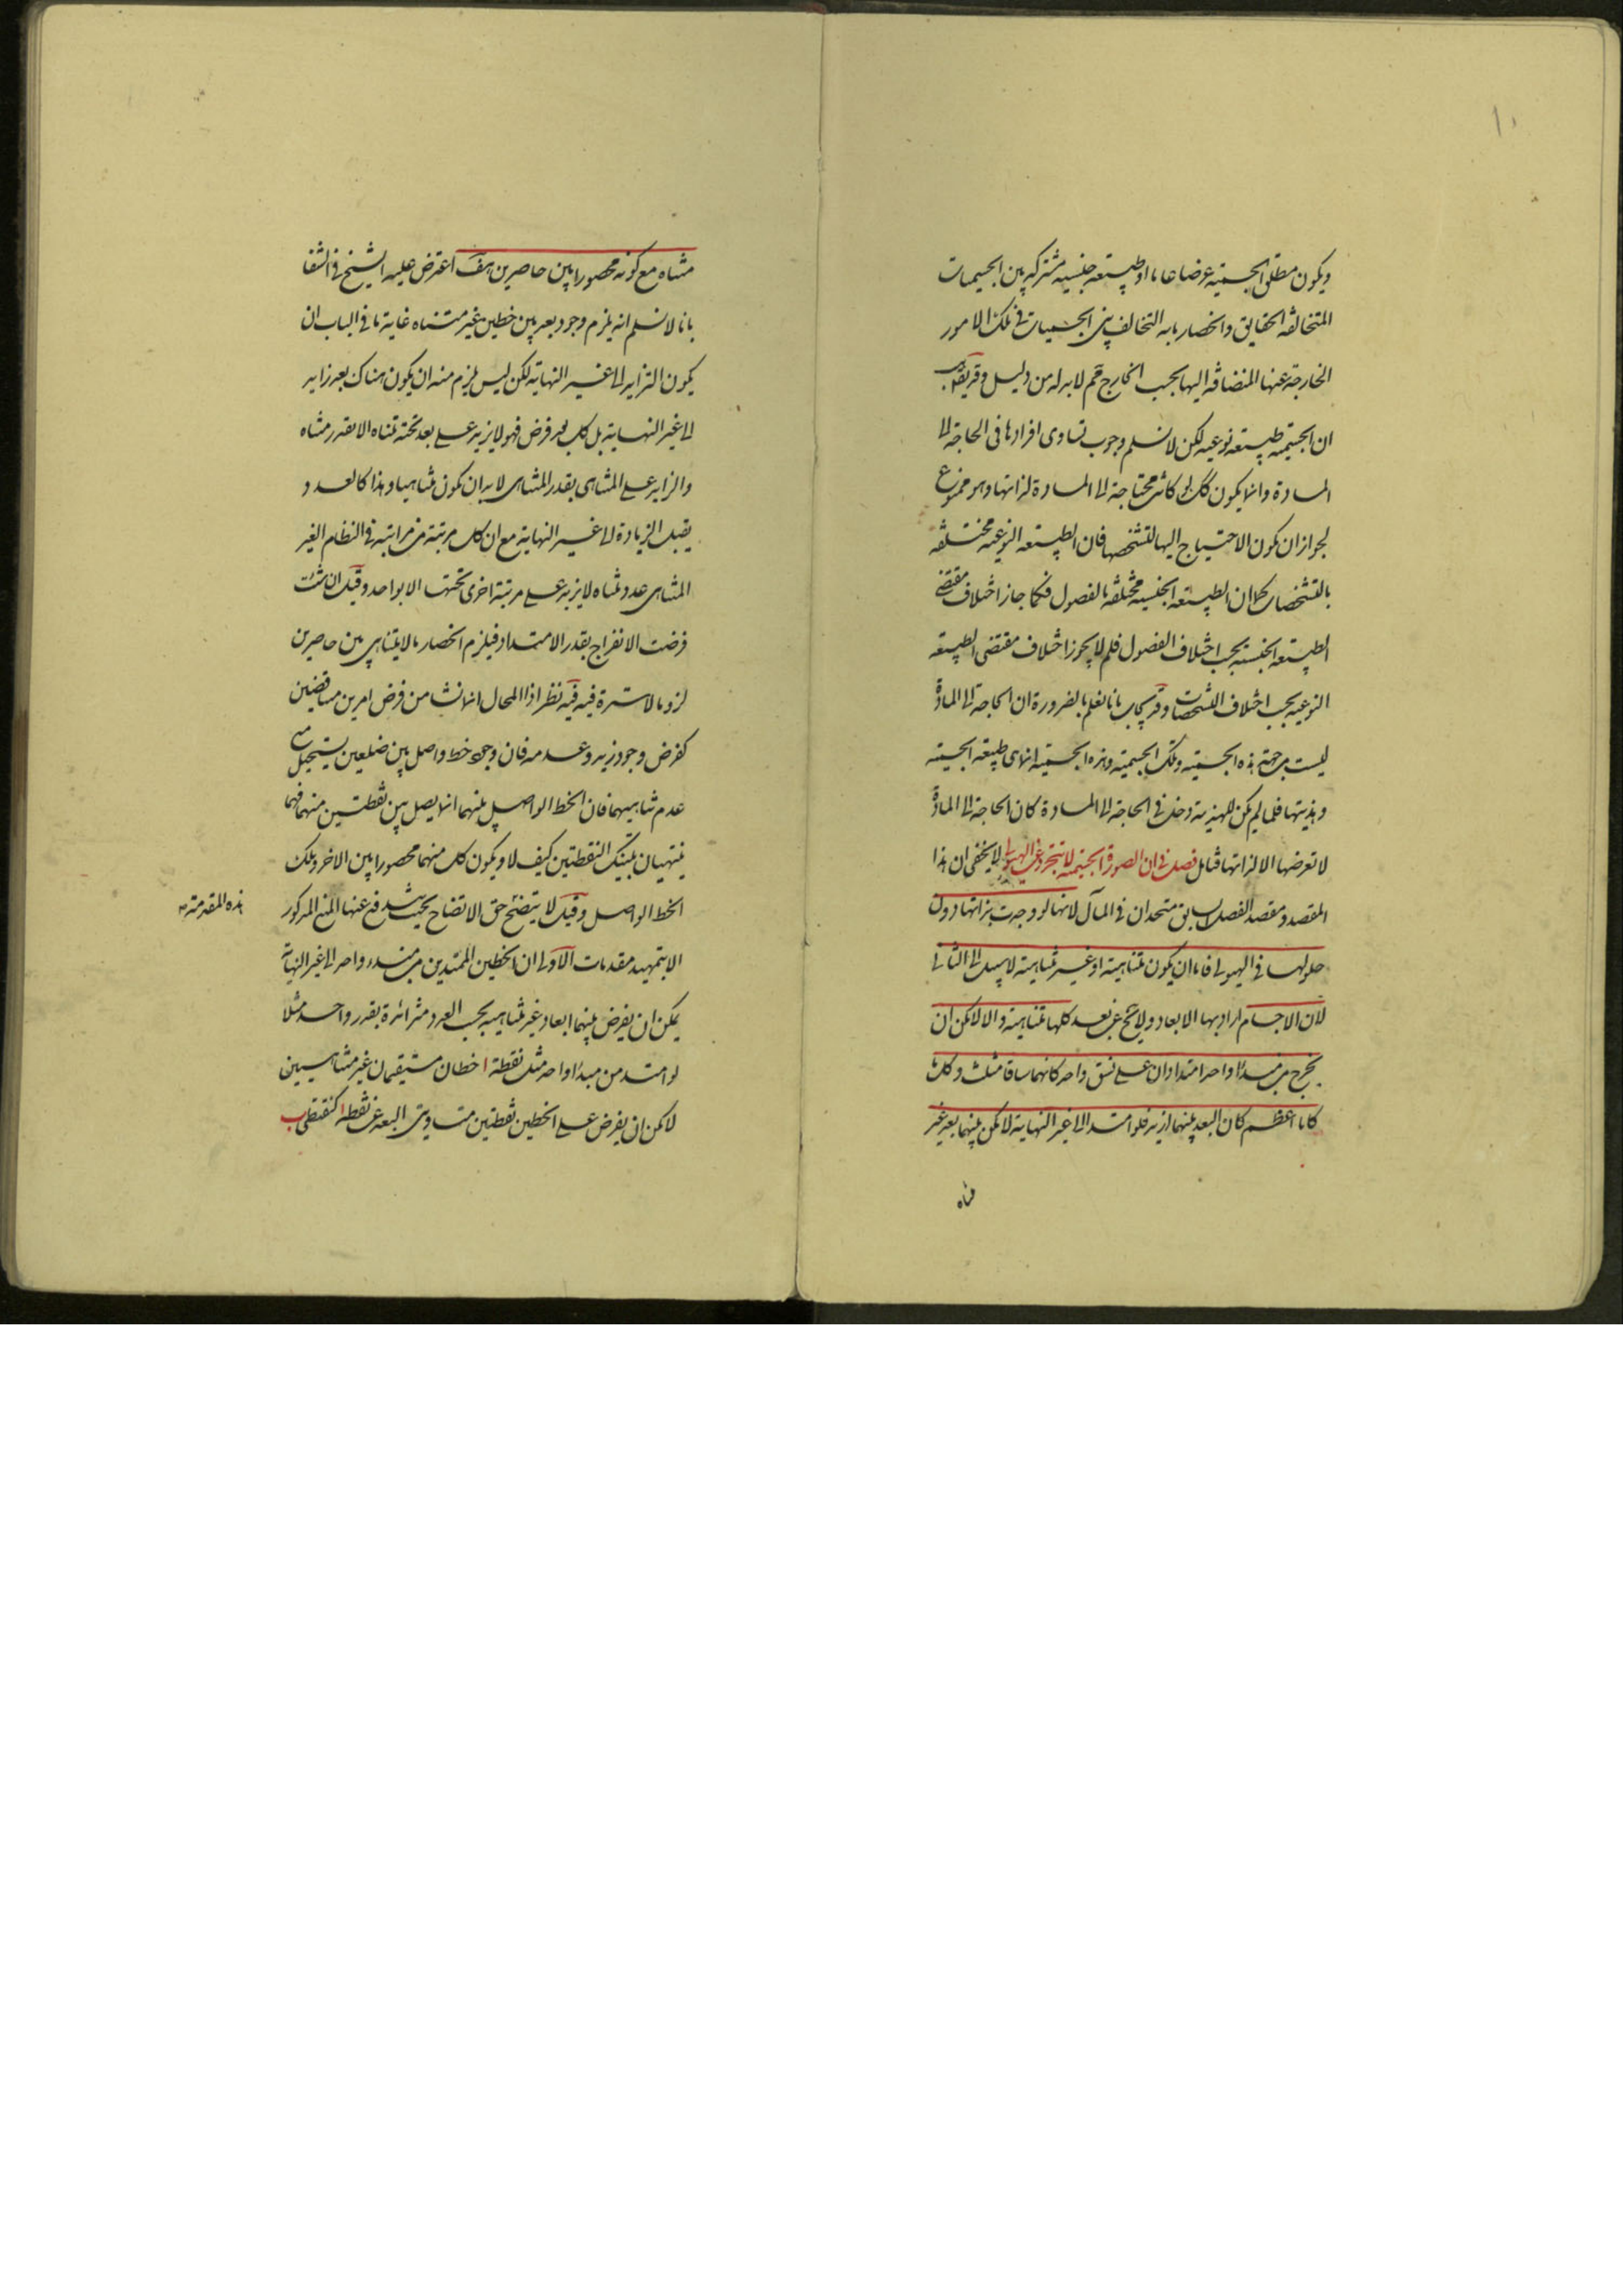 ويكون مطلق الجسمية عرضا عاما او طبيعة جنسية مشتركة بين الجسميات
المتخالفة الحقايق وانحصار ما به التخالف بين الجسميات في تلك الامور
الخارجة عنها المنضافة اليها بحسب الخارج مم لا بد له من دليل وقد يقال
ان الجسمية طبيعة نوعية لكن لا نسلم وجوب تساوى افرادها فى الحاجة الى
المادة وانما يكون كك لو كانت محتاجة الى المادة لذاتها وهو ممنوع
لجواز ان يكون الاحتياج اليها لتشخصها فان الطبيعة النوعية مختلفة
بالتشخصات كما ان الطبيعة الجنسية مختلفة بالفصول فكما جاز اختلاف مقتضى
الطبيعة الجنسية بحسب اختلاف الفصول فلم لا يجوز اختلاف مقتضى الطبيعة
النوعية بحسب اختلاف التشخصات وقد يجاب بانا نعلم بالضرورة ان الحاجة الى المادة
ليست من جهة هذه الجسمية وتلك الجسمية وهذه الجسمية انما هى طبيعة الجسمية
وهذيتها فلما لم يكن للهذية دخل فى الحاجة الى المادة كان الحاجة الى المادة
لا تعرضها الا لذاتها فتامل فصل فى ان الصورة الجسمية لا تتجرد عن الهيولى لا يخفى ان هذا
المقصد ومقصد الفصل السابق متحدان فى المآل لانها لو وجدت بذاتها دون
حلولها فى الهيولى فاما ان يكون متناهية او غير متناهية لا سبيل الى الثانى
لان الاجسام اراد بها الابعاد كلها متناهية والا لامكن ان
يخرج من مبدأ واحد امتدادان على نسق واحد كانهما ساقا مثلث وكلما
كانا اعظم كان البعد بينهما ازيد فلو امتدا الى غير النهاية لامكن بينهما بعد غير
متناه
متناه مع كونه محصورا بين حاصرين هف اعترض عليه الشيخ فى الشفا
بانا لا نسلم انه يلزم وجود بعد بين خطين غير متناه غاية ما فى الباب ان
يكون التزايد الى غير النهاية لكن ليس يلزم منه ان يكون هناك بعد زايد
الى غير النهاية بل كل بعد فرض فهو لا يزيد على بعد تحته متناه الا بقدر متناه
والزايد على المتناهى بقدر المتناهى لا بد ان يكون متناهيا وهذا كالعدد
يقبل الزيادة الى غير النهاية مع ان كل مرتبة من مراتبه فى النظام الغير
المتناهى عدد متناه لا يزيد على مرتبة اخرى تحتها الا بواحد وقيل ان شئت
فرضت الانفراج بقدر الامتداد فيلزم انحصار ما لا يتناهى بين حاصرين
لزوما لا سترة فيه فيه نظر اذ المحال انما نشا من فرض امرين متناقضين
كفرض وجود زيد وعدمه فان وجود خط واصل بين ضلعين يستحيل مع
عدم تناهيهما فان الخط الواصل بينهما انما يصل بين نقطتين منهما فهما
ينتهيان بتينك النقطتين كيف لا ويكون كل منهما محصورا بين الاخر وذلك
الخط الواصل وقيل لا يتضح حق الاتضاح بحيث يندفع عنها المنع المذكور
هذه المقدمة
الا بتمهيد مقدمات الاولى ان الخطين الممتدين من مبدء واحد الى غير النهاية
يمكن ان يفرض بينهما ابعاد غير متناهية بحسب العدد متزائدة بقدر واحد مثلا
لو امتد من مبدأ واحد مثل نقطة ا خطان مستقيمان غير متناهيين
لامكن ان يفرض على الخطين نقطتين متساوى البعد عن نقطة ا كنقطتى ب